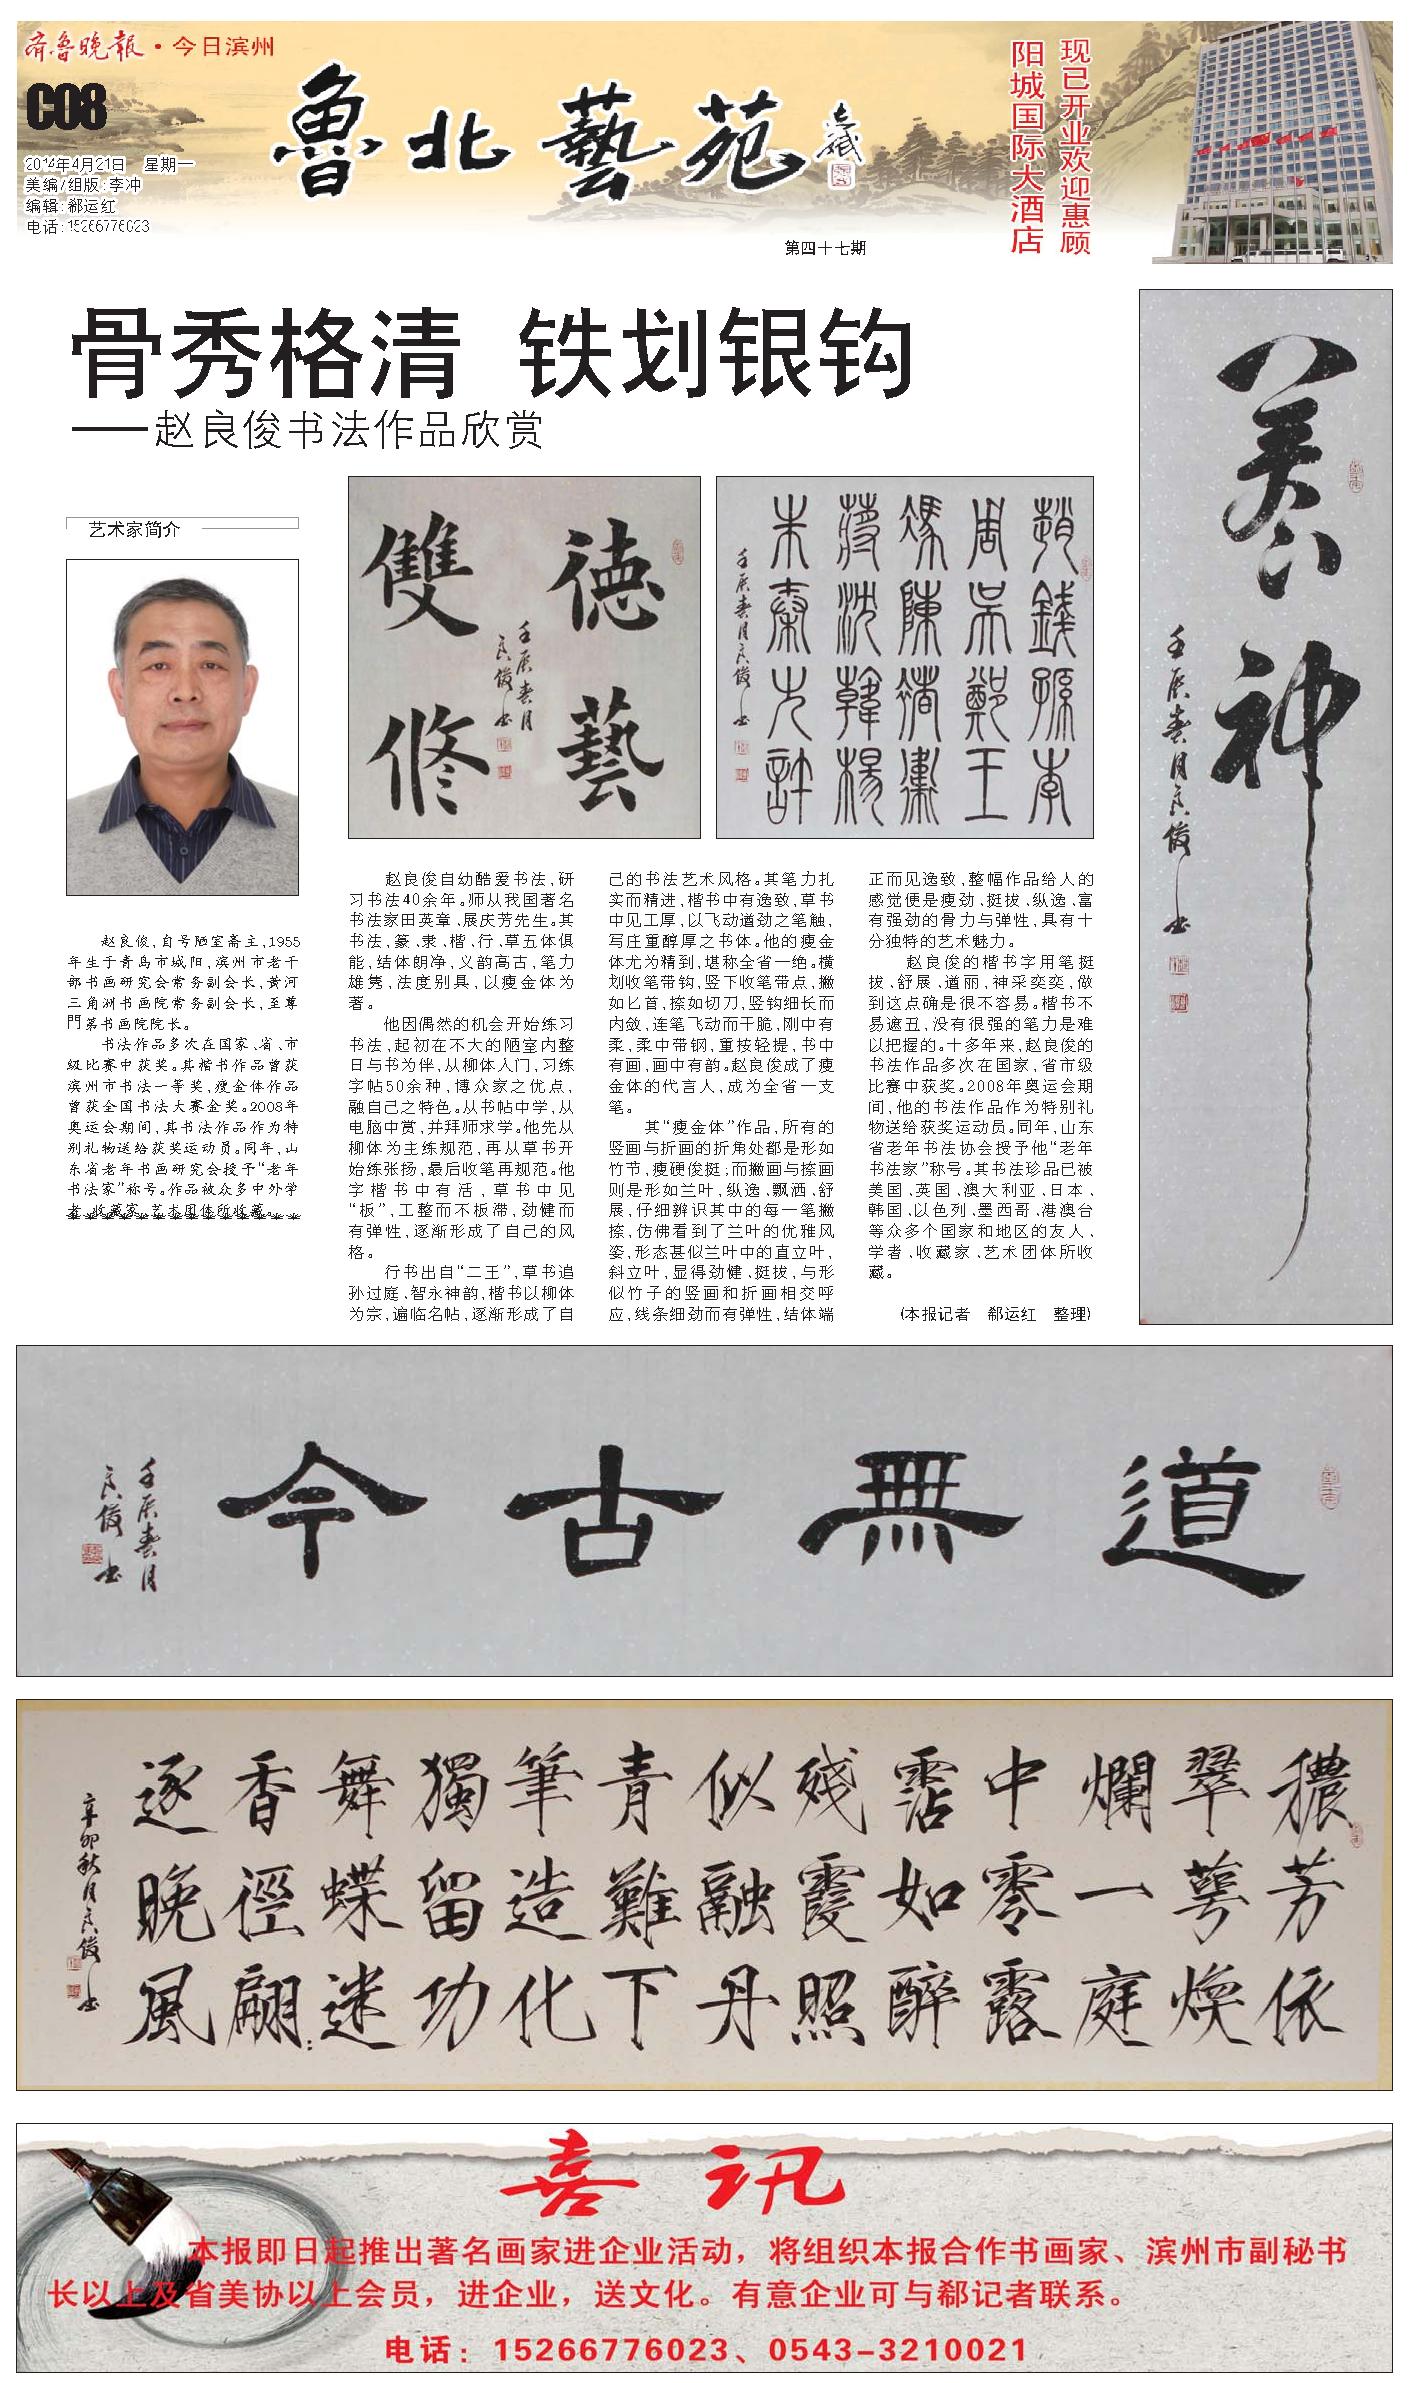 齐鲁晚报·今日滨州
C08
2014年4月21日　星期一
美编/组版:李冲
编辑:郗运红
电话:15266776023
魯北藝苑
第四十七期
现已开业欢迎惠顾
阳城国际大酒店
骨秀格清　铁划银钩
——赵良俊书法作品欣赏
艺术家简介
赵良俊,自号陋室斋主,1955
年生于青岛市城阳,滨州市老干
部书画研究会常务副会长,黄河
三角洲书画院常务副会长,至尊
門第书画院院长。
书法作品多次在国家、省、市
级比赛中获奖。其楷书作品曾获
滨州市书法一等奖,瘦金体作品
曾获全国书法大赛金奖。2008年
奥运会期间,其书法作品作为特
别礼物送给获奖运动员。同年,山
东省老年书画研究会授予“老年
书法家”称号。作品被众多中外学
者、收藏家、艺术团体所收藏。
德藝
雙修
壬辰春月
良俊书
趙錢孫李
周吴鄭王
馮陳褚衛
蒋沈韓楊
朱秦尤許
壬辰春月良俊书
养神
壬辰春月良俊书
赵良俊自幼酷爱书法,研
习书法40余年。师从我国著名
书法家田英章、展庆芳先生。其
书法,篆、隶、楷、行、草五体俱
能,结体朗净,义韵高古,笔力
雄隽,法度别具,以瘦金体为
著。
他因偶然的机会开始练习
书法,起初在不大的陋室内整
日与书为伴,从柳体入门,习练
字帖50余种,博众家之优点,
融自己之特色。从书帖中学,从
电脑中赏,并拜师求学。他先从
柳体为主练规范,再从草书开
始练张扬,最后收笔再规范。他
字楷书中有活,草书中见
“板”,工整而不板滞,劲健而
有弹性,逐渐形成了自己的风
格。
行书出自“二王”,草书追
孙过庭、智永神韵,楷书以柳体
为宗,遍临名帖,逐渐形成了自
己的书法艺术风格。其笔力扎
实而精进,楷书中有逸致,草书
中见工厚,以飞动遒劲之笔触,
写庄重醇厚之书体。他的瘦金
体尤为精到,堪称全省一绝。横
划收笔带钩,竖下收笔带点,撇
如匕首,捺如切刀,竖钩细长而
内敛,连笔飞动而干脆,刚中有
柔,柔中带钢,重按轻提,书中
有画,画中有韵。赵良俊成了瘦
金体的代言人,成为全省一支
笔。
其“瘦金体”作品,所有的
竖画与折画的折角处都是形如
竹节,瘦硬俊挺;而撇画与捺画
则是形如兰叶,纵逸、飘洒、舒
展,仔细辨识其中的每一笔撇
捺,仿佛看到了兰叶的优雅风
姿,形态甚似兰叶中的直立叶,
斜立叶,显得劲健、挺拔,与形
似竹子的竖画和折画相交呼
应,线条细劲而有弹性,结体端
正而见逸致,整幅作品给人的
感觉便是瘦劲、挺拔、纵逸、富
有强劲的骨力与弹性,具有十
分独特的艺术魅力。
赵良俊的楷书字用笔挺
拔、舒展、遒丽,神采奕奕,做
到这点确是很不容易。楷书不
易遮丑,没有很强的笔力是难
以把握的。十多年来,赵良俊的
书法作品多次在国家,省市级
比赛中获奖。2008年奥运会期
间,他的书法作品作为特别礼
物送给获奖运动员。同年,山东
省老年书法协会授予他“老年
书法家”称号。其书法珍品已被
美国、英国、澳大利亚、日本、
韩国、以色列、墨西哥、港澳台
等众多个国家和地区的友人,
学者、收藏家、艺术团体所收
藏。
(本报记者　郗运红　整理)
道無古今
壬辰春月
良俊书
穠芳依
翠萼焕
爛一庭
中零露
霑如醉
残霞照
似融丹
青難下
筆造化
獨留功
舞蝶迷
香徑翩:
逐晚風
辛卯秋月良俊书
喜讯
本报即日起推出著名画家进企业活动，将组织本报合作书画家、滨州市副秘书
长以上及省美协以上会员，进企业，送文化。有意企业可与郗记者联系。
电话：15266776023、0543-3210021